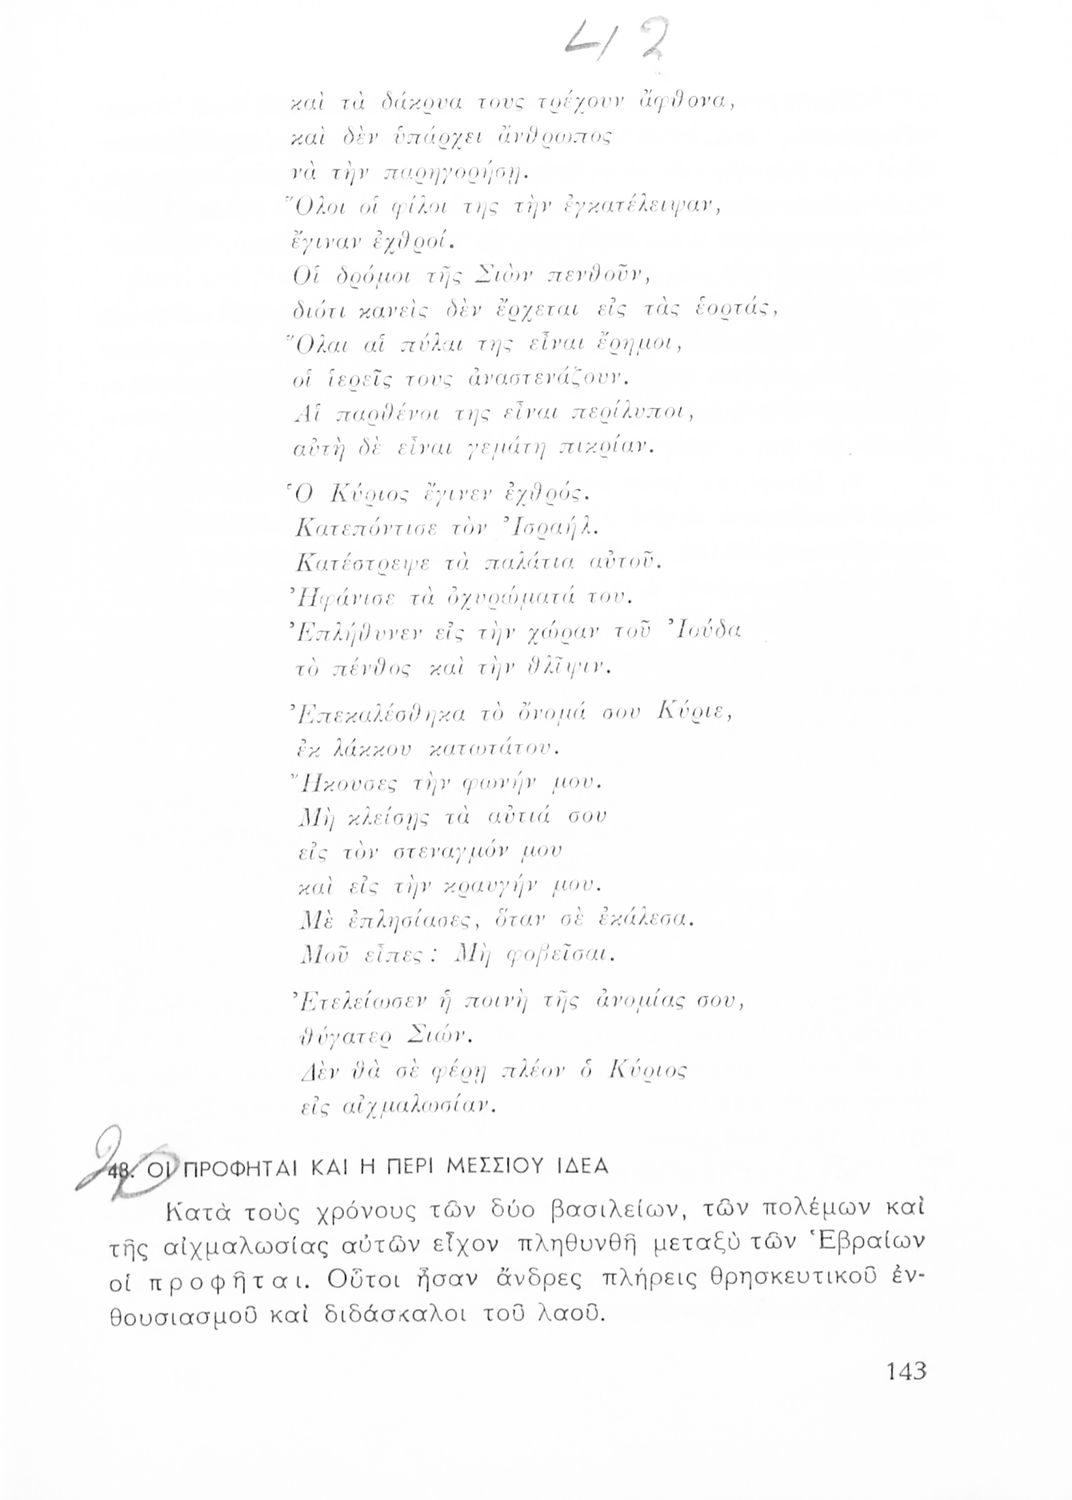 42
καὶ τὰ δάκρυα τους τρέχουν ἄφθονα,
καὶ δὲν ὑπάρχει ἄνθρωπος
νὰ τὴν παρηγορήσῃ.
Ὅλοι οἱ φίλοι της τὴν ἐγκατέλειψαν,
ἔγιναν ἐχθροί.
Οἱ δρόμοι τῆς Σιὼν πενθοῦν,
διότι κανεὶς δὲν ἔρχεται εἰς τὰς ἑορτάς,
Ὅλαι αἱ πύλαι της εἶναι ἔρημοι,
οἱ ἱερεῖς τους ἀναστενάζουν.
Αἱ παρθένοι της εἶναι περίλυποι,
αὐτὴ δὲ εἶναι γεμάτη πικρίαν.
Ὁ Κύριος ἔγινεν ἐχθρός.
Κατεπόντισε τὸν Ἰσραήλ.
Κατέστρεψε τὰ παλάτια αὐτοῦ.
Ἠφάνισε τὰ ὀχυρώματά του.
Ἐπλήθυνεν εἰς τὴν χώραν τοῦ Ἰούδα
τὸ πένθος καὶ τὴν θλῖψιν.
Ἐπεκαλέσθηκα τὸ ὄνομά σου Κύριε,
ἐκ λάκκου κατωτάτου.
Ἤκουσες τὴν φωνήν μου.
Μὴ κλείσῃς τὰ αὐτιά σου
εἰς τὸν στεναγμόν μου
καὶ εἰς τὴν κραυγήν μου.
Μὲ ἐπλησίασες, ὅταν σὲ ἐκάλεσα.
Μοῦ εἶπες: Μὴ φοβεῖσαι.
Ἐτελείωσεν ἡ ποινὴ τῆς ἀνομίας σου,
θύγατερ Σιών.
Δὲν θὰ σὲ φέρῃ πλέον ὁ Κύριος
εἰς αἰχμαλωσίαν.
48. ΟΙ ΠΡΟΦΗΤΑΙ ΚΑΙ Η ΠΕΡΙ ΜΕΣΣΙΟΥ ΙΔΕΑ
Κατὰ τοὺς χρόνους τῶν δύο βασιλείων, τῶν πολέμων καὶ
τῆς αἰχμαλωσίας αὐτῶν εἶχον πληθυνθῆ μεταξὺ τῶν Ἑβραίων
οἱ προφῆται. Οὗτοι ἦσαν ἄνδρες πλήρεις θρησκευτικοῦ ἐν-
θουσιασμοῦ καὶ διδάσκαλοι τοῦ λαοῦ.
143